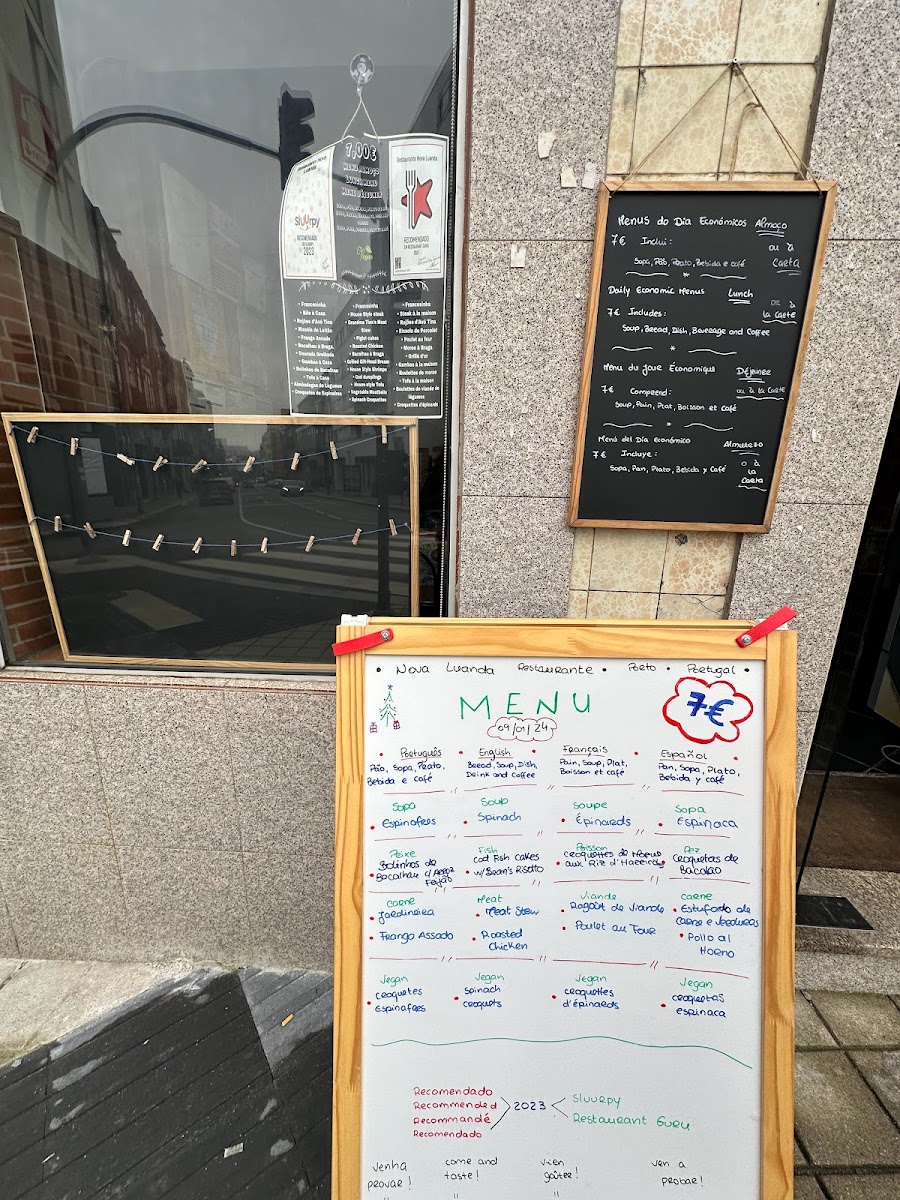 7,00€
MENU ALMOÇO
LUNCH MENU
MENU DÉJEUNER
Sluurpy
RECOMENDADO
2023
Restaurante Nova Luanda
RECOMENDADO
• Francesinha
• Bife à Casa
• Rojões d'Avó Tina
• Rissóis de Leitão
• Frango Assado
• Bacalhau à Braga
• Dourada Grelhada
• Gambas à Casa
• Bolinhos de Bacalhau
• Tofu à Casa
• Almôndegas de Legumes
• Croquetes de Espinafres
• Francesinha
• House Style steak
• Grandma Tina's Meat Stew
• Piglet cakes
• Roasted Chicken
• Bacalhau à Braga
• Grilled Gilt-Head Bream
• House Style Shrimps
• Cod dumplings
• House style Tofu
• Vegetable Meatballs
• Spinach Croquettes
• Francesinha
• Steak à la maison
• Rojões d'Avó Tina
• Rissois de Porcelet
• Poulet au four
• Morue à Braga
• Grillé d'or
• Gambas à la maison
• Boulettes de morue
• Tofu à la maison
• Boulettes de viande de légumes
• Croquettes d'épinards
Menus do Dia Económicos Almoço
7€ Inclui: ou à
Sopa, Pão, Prato, Bebida e café Carta
Daily Economic Menus Lunch
7€ Includes: à
la Carte
Soup, Bread, Dish, Baverage and Coffee
Menu du jour Économique Déjeunee
7€ Comprend: ou à la Carte
Soup, Pain, Plat, Boisson et café
Menú del Día económico Almuerzo
7€ Incluye: o à
la
Sopa, Pan, Plato, Bebida y Café Carta
• Nova Luanda Restaurante • Porto • Portugal •
MENU 7€
09/01/24
• Português
Pão, Sopa, Prato,
Bebida e café
• English
Bread, Soup, Dish,
Drink and Coffee
• Français
Pain, Soup, Plat,
Boisson et café
Español •
Pan, Sopa, Plato,
Bebida y café
Sopa
• Espinafres
Soup
• Spinach
Soupe
• Épinards
Sopa
• Espinaca
Peixe
• Bolinhos de
Bacalhau c/ Arroz
Feijão
Fish
• Cod Fish cakes
w/ Bean's Risotto
Poisson
• Croquettes de Morue
aux Riz d'Haricots
Pez
• Croquetas de
Bacalao
Carne
• Jardineira
• Frango Assado
Meat
• Meat Stew
• Roasted
Chicken
Viande
• Ragoût de Viande
• Poulet au Four
Carne
• Estufado de
Carne e Verduras
• Pollo al
Horno
Vegan
• Croquetes
Espinafres
Vegan
• Spinach
croquets
Vegan
• croquettes
d'épinards
Vegan
• croquetas
espinaca
Recomendado
Recommended
Recommandé
Recomendado
2023
Sluurpy
Restaurant Guru
Venha
provar!
come and
taste!
vien
goûter!
Ven a
probar!